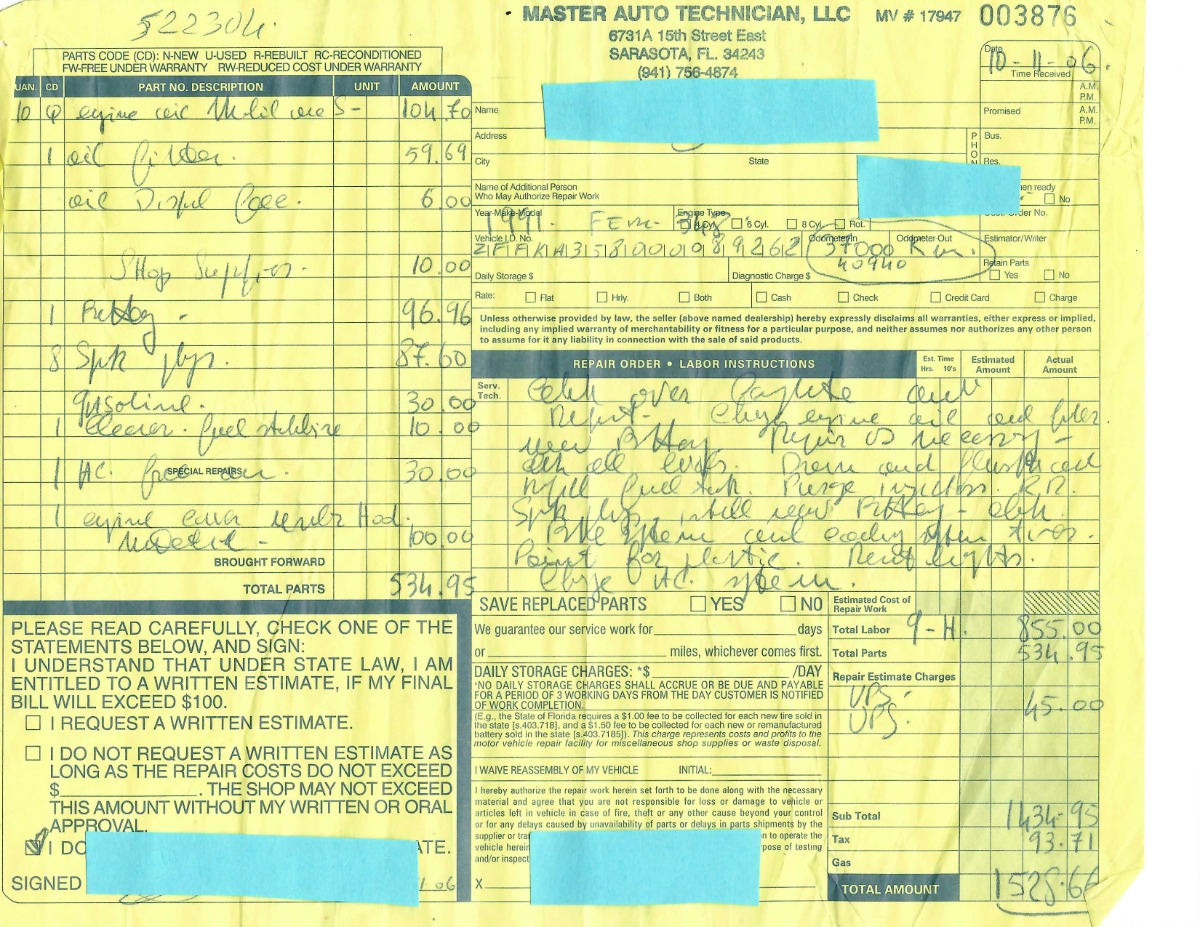 522304
MASTER AUTO TECHNICIAN, LLC MV # 17947 003876
6731A 15th Street East
SARASOTA, FL. 34243
(941) 756-4874
PARTS CODE (CD): N-NEW U-USED R-REBUILT RC-RECONDITIONED
FW-FREE UNDER WARRANTY RW-REDUCED COST UNDER WARRANTY
UAN. CD PART NO. DESCRIPTION UNIT AMOUNT
10 Q engine oil Mobil one S- 104.70
1 oil filter. 59.69
oil 6.00
Shop Supplies. 10.00
1 Battery - 96.96
8 Spk plgs. 87.60
gasoline. 30.00
1 cleaner. fuel stabilize 10.00
SPECIAL REPAIRS
1 AC. freeon. 30.00
1 engine cover under Hod.
100.00
BROUGHT FORWARD
TOTAL PARTS 534.95
Date 10-11-06.
Time Received A.M.
P.M.
Name Promised A.M.
P.M.
Address PHON Bus.
City State Res.
Name of Additional Person
Who May Authorize Repair Work
en ready
No
Year-Make-Model 1991. Ferr. 348 Engine Type 4 Cyl. 6 Cyl. 8 Cyl. Rot. Cust. Order No.
Vehicle I.D. No. ZFFKA35B000089262 Odometer In 37000 Km. Odometer Out Estimator/Writer
40940
Retain Parts
Yes No
Daily Storage $ Diagnostic Charge $
Rate: Flat Hrly. Both Cash Check Credit Card Charge
Unless otherwise provided by law, the seller (above named dealership) hereby expressly disclaims all warranties, either express or implied,
including any implied warranty of merchantability or fitness for a particular purpose, and neither assumes nor authorizes any other person
to assume for it any liability in connection with the sale of said products.
REPAIR ORDER • LABOR INSTRUCTIONS Est. Time Hrs. 10's Estimated Amount Actual Amount
Serv.
Tech.
over
Report. engine oil and filter
new Battery Repair as necessary -
all Drain and flush and
fuel tank. Purge injectors. R.R.
Spk plgs, new Battery -
and tires.
Paint for plastic. lights.
AC.
SAVE REPLACED PARTS YES NO
We guarantee our service work for days
or miles, whichever comes first.
DAILY STORAGE CHARGES: *$ /DAY
*NO DAILY STORAGE CHARGES SHALL ACCRUE OR BE DUE AND PAYABLE
FOR A PERIOD OF 3 WORKING DAYS FROM THE DAY CUSTOMER IS NOTIFIED
OF WORK COMPLETION.
(E.g., the State of Florida requires a $1.00 fee to be collected for each new tire sold in
the state [s.403.718], and a $1.50 fee to be collected for each new or remanufactured
battery sold in the state [s.403.7185]). This charge represents costs and profits to the
motor vehicle repair facility for miscellaneous shop supplies or waste disposal.
I WAIVE REASSEMBLY OF MY VEHICLE INITIAL:
I hereby authorize the repair work herein set forth to be done along with the necessary
material and agree that you are not responsible for loss or damage to vehicle or
articles left in vehicle in case of fire, theft or any other cause beyond your control
or for any delays caused by unavailability of parts or delays in parts shipments by the
supplier or tra n to operate the
vehicle herein pose of testing
and/or inspect
X
Estimated Cost of
Repair Work
Total Labor 9-H. 855.00
Total Parts 534.95
Repair Estimate Charges
UPS.
UPS. 45.00
Sub Total 1434.95
Tax 93.71
Gas
TOTAL AMOUNT 1528.66
PLEASE READ CAREFULLY, CHECK ONE OF THE
STATEMENTS BELOW, AND SIGN:
I UNDERSTAND THAT UNDER STATE LAW, I AM
ENTITLED TO A WRITTEN ESTIMATE, IF MY FINAL
BILL WILL EXCEED $100.
I REQUEST A WRITTEN ESTIMATE.
I DO NOT REQUEST A WRITTEN ESTIMATE AS
LONG AS THE REPAIR COSTS DO NOT EXCEED
$ . THE SHOP MAY NOT EXCEED
THIS AMOUNT WITHOUT MY WRITTEN OR ORAL
APPROVAL.
I DO ATE.
SIGNED 06